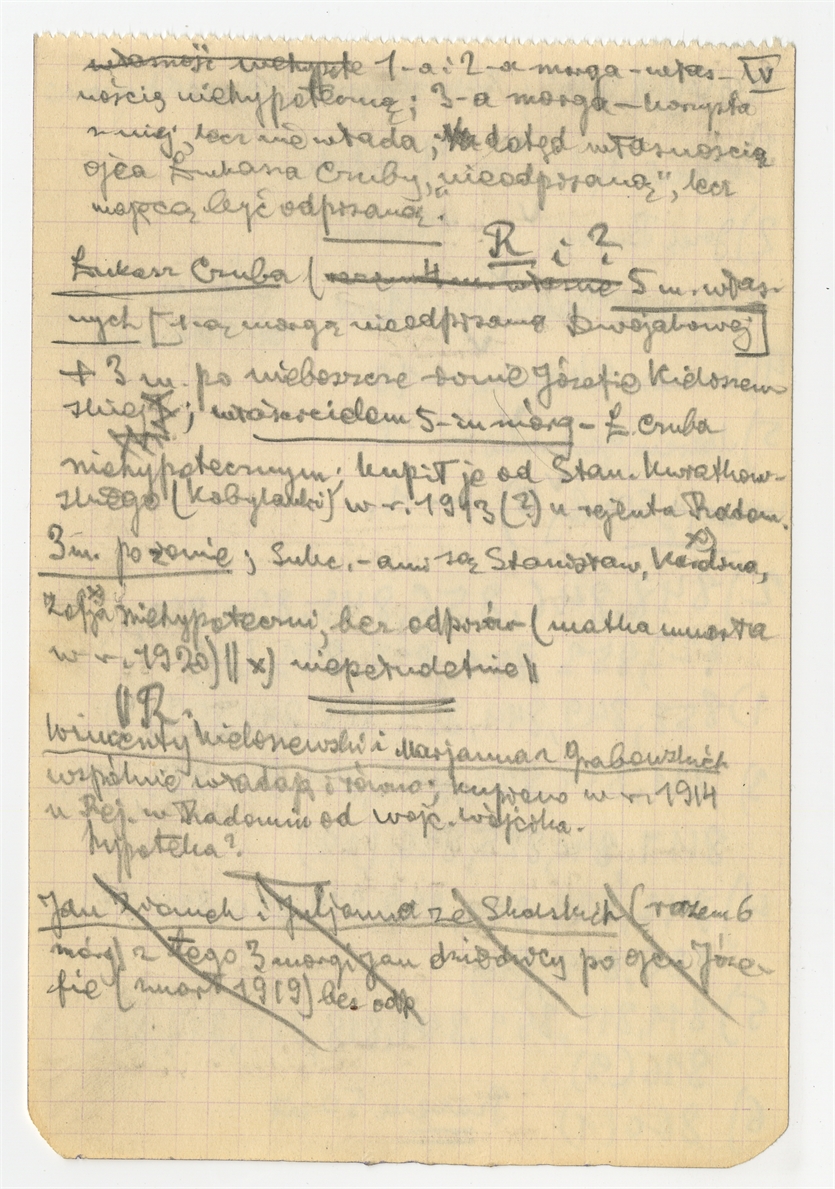 własność niehypote 1-a i 2-a morga - włas- IV
nością niehypoteczną; 3-a morga - korzysta
z niej, lecz nie włada; dotąd własnością
ojca Łukasza Czuby, „nieodpisaną", lecz
mającą być odpisaną.
R i ?
Łukasz Czuba (razem 4 m. własne 5 m. włas-
nych [1-ą morgą nieodpisaną
+ 3 m. po nieboszce żonie Józefie Kidoszew
skiej; właścicielem 5-iu mórg - Ł. Czuba
niehypotecznym; kupił je od Stan. Kwiatkow-
skiego (Kobylanki) w r. 1913 (?) u rejenta Radom.
3 m. po żonie; Sukc.-ami są Stanisław, Karolina, x)
Zofja x) niehypoteczni, bez odpisów (matka umarła
w r. 1920) || x) niepełnoletnie ||
|| R.
Wincenty Kidoszewski i Marjanna z Grabowskich
wspólnie władają i równo; kupiono w r. 1914
u Rej. w Radomiu od Wojc. Wójcika.
hypoteka?
Jan i Juljanna ze Skolskich (razem 6
mórg) z tego 3 morgi Jan dziedziczy po ojcu Józe-
fie (zmarł 1919) bez odp